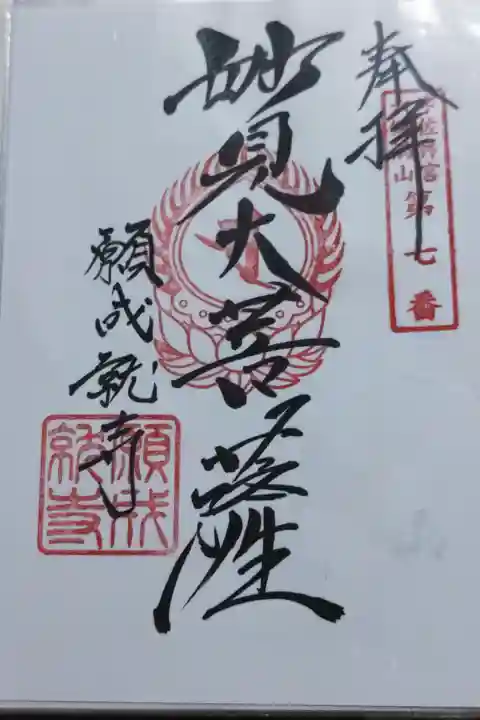 奉拝
佐神宮
山
第七番
妙見大菩薩
願成就寺
願成
就寺